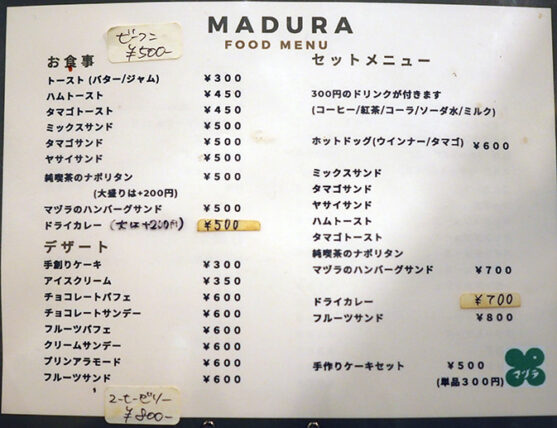 ビーフン
¥500-
MADURA
FOOD MENU
お食事
トースト (バター/ジャム) ¥300
ハムトースト ¥450
タマゴトースト ¥450
ミックスサンド ¥500
タマゴサンド ¥500
ヤサイサンド ¥500
純喫茶のナポリタン ¥500
(大盛りは+200円)
マヅラのハンバーグサンド ¥500
ドライカレー (大は+200円) ¥500
デザート
手創りケーキ ¥300
アイスクリーム ¥350
チョコレートパフェ ¥600
チョコレートサンデー ¥600
フルーツパフェ ¥600
クリームサンデー ¥600
プリンアラモード ¥600
フルーツサンド ¥600
コーヒーゼリー
¥800-
セットメニュー
300円のドリンクが付きます
(コーヒー/紅茶/コーラ/ソーダ水/ミルク)
ホットドッグ(ウインナー/タマゴ) ¥600
ミックスサンド
タマゴサンド
ヤサイサンド
ハムトースト
タマゴトースト
純喫茶のナポリタン
マヅラのハンバーグサンド ¥700
ドライカレー ¥700
フルーツサンド ¥800
手作りケーキセット ¥500
(単品300円)
マヅラ